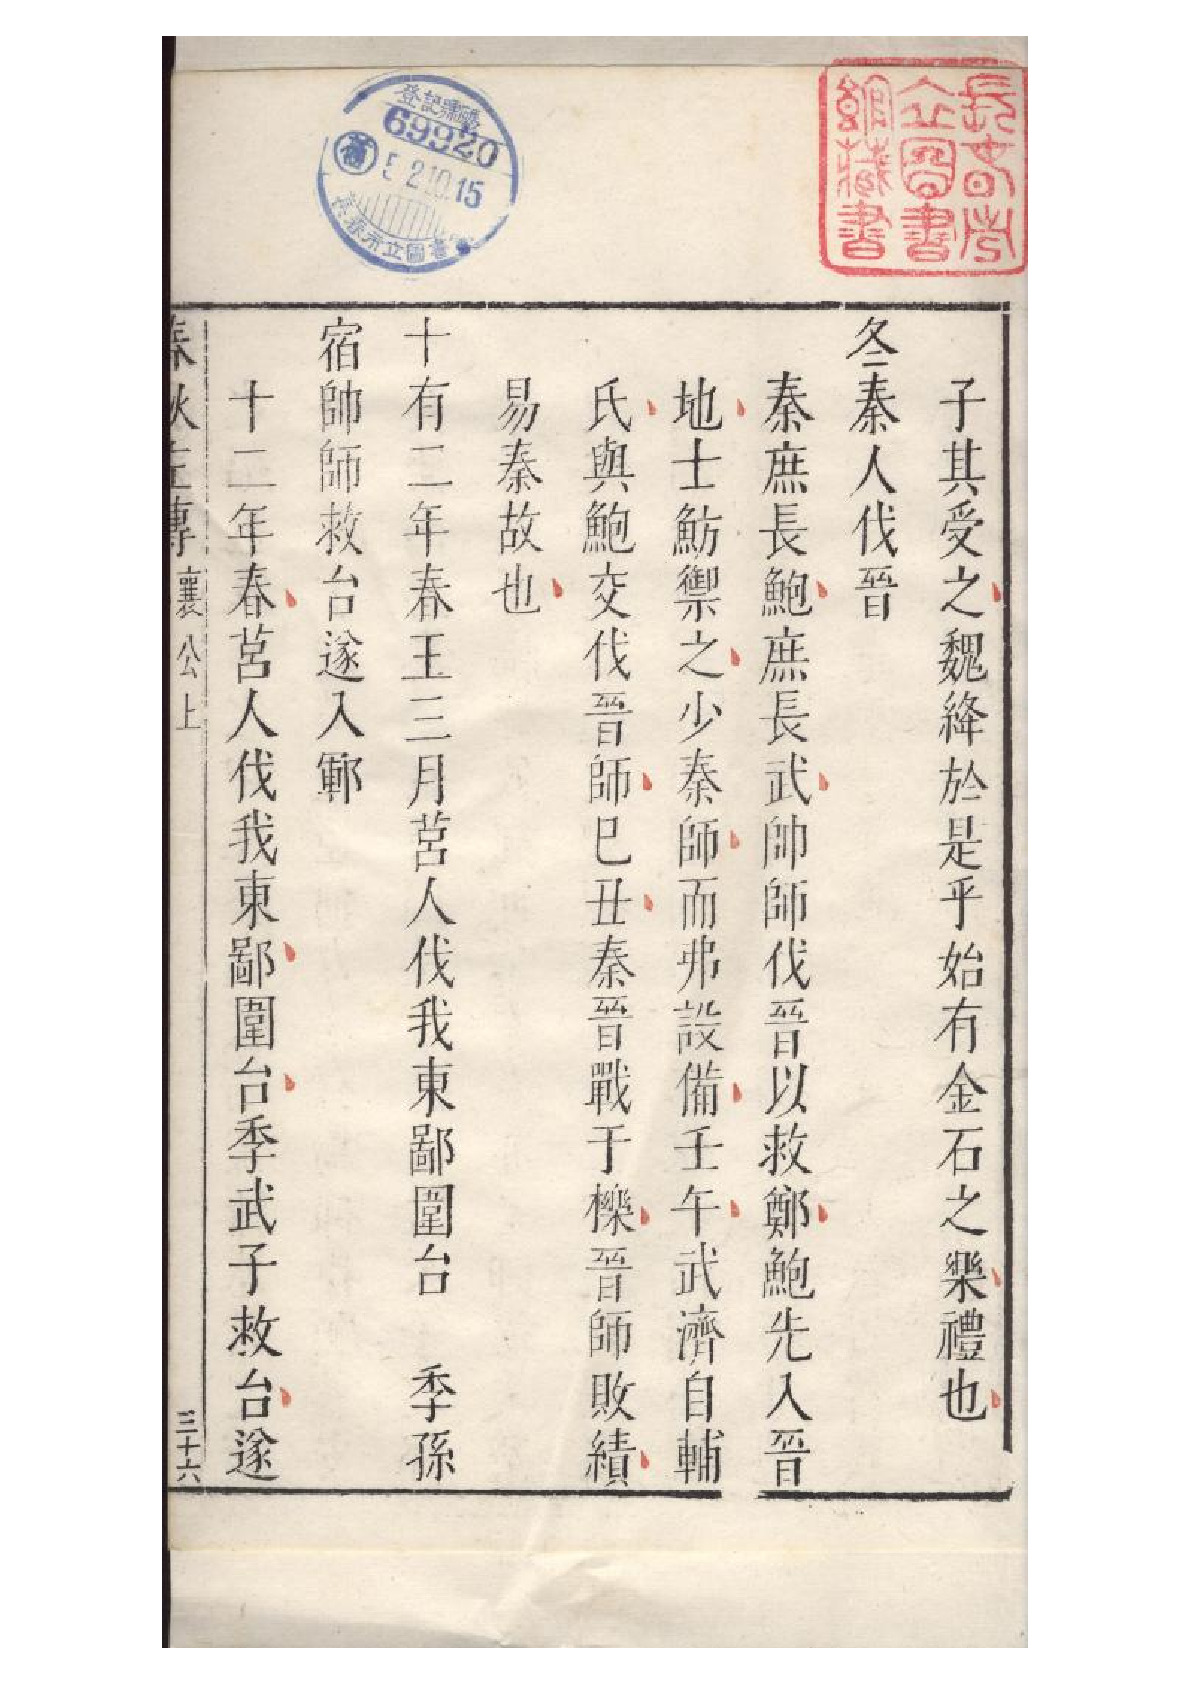 子其受之魏絳於是乎始有金石之樂禮也
冬秦人伐晉
秦庶長鮑庶長武帥師伐晉以救鄭鮑先入晉
地士魴禦之少秦師而弗設備壬午武濟自輔
氏與鮑交伐晉師巳丑秦晉戰于櫟晉師敗績
易秦故也
十有二年春王三月莒人伐我東鄙圍台　季孫
宿帥師救台遂入鄆
十二年春莒人伐我東鄙圍台季武子救台遂
春秋左傳 襄公上 三十六
長春市立圖書館藏書
登記票號
69920
5 2.10.15
長春市立圖書